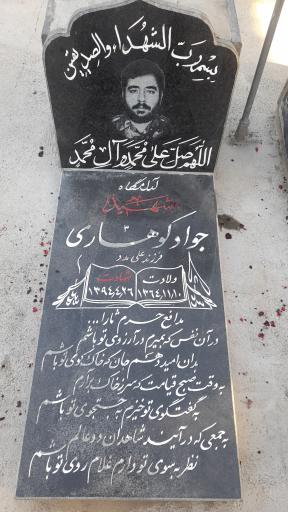 بسم رب الشهداء والصدیقین
اللهم صل علی محمد وآل محمد
آرامگاه
شهید
جواد کوهساری
فرزند علی مدد
ولادت
۱۳۶۴،۱۱،۱۰
شهادت
۱۳۹۴،۴،۲۶
مدافع حرم
در آن نفس که بمیرم در آرزوی تو باشم
بدان امید دهم جان که خاک کوی تو باشم
به وقت صبح قیامت که سر ز خاک برآرم
به گفتگوی تو خیزم به جستجوی تو باشم
به جمعی که درآیند شاهدان دو عالم
نظر به سوی تو دارم غلام روی تو باشم